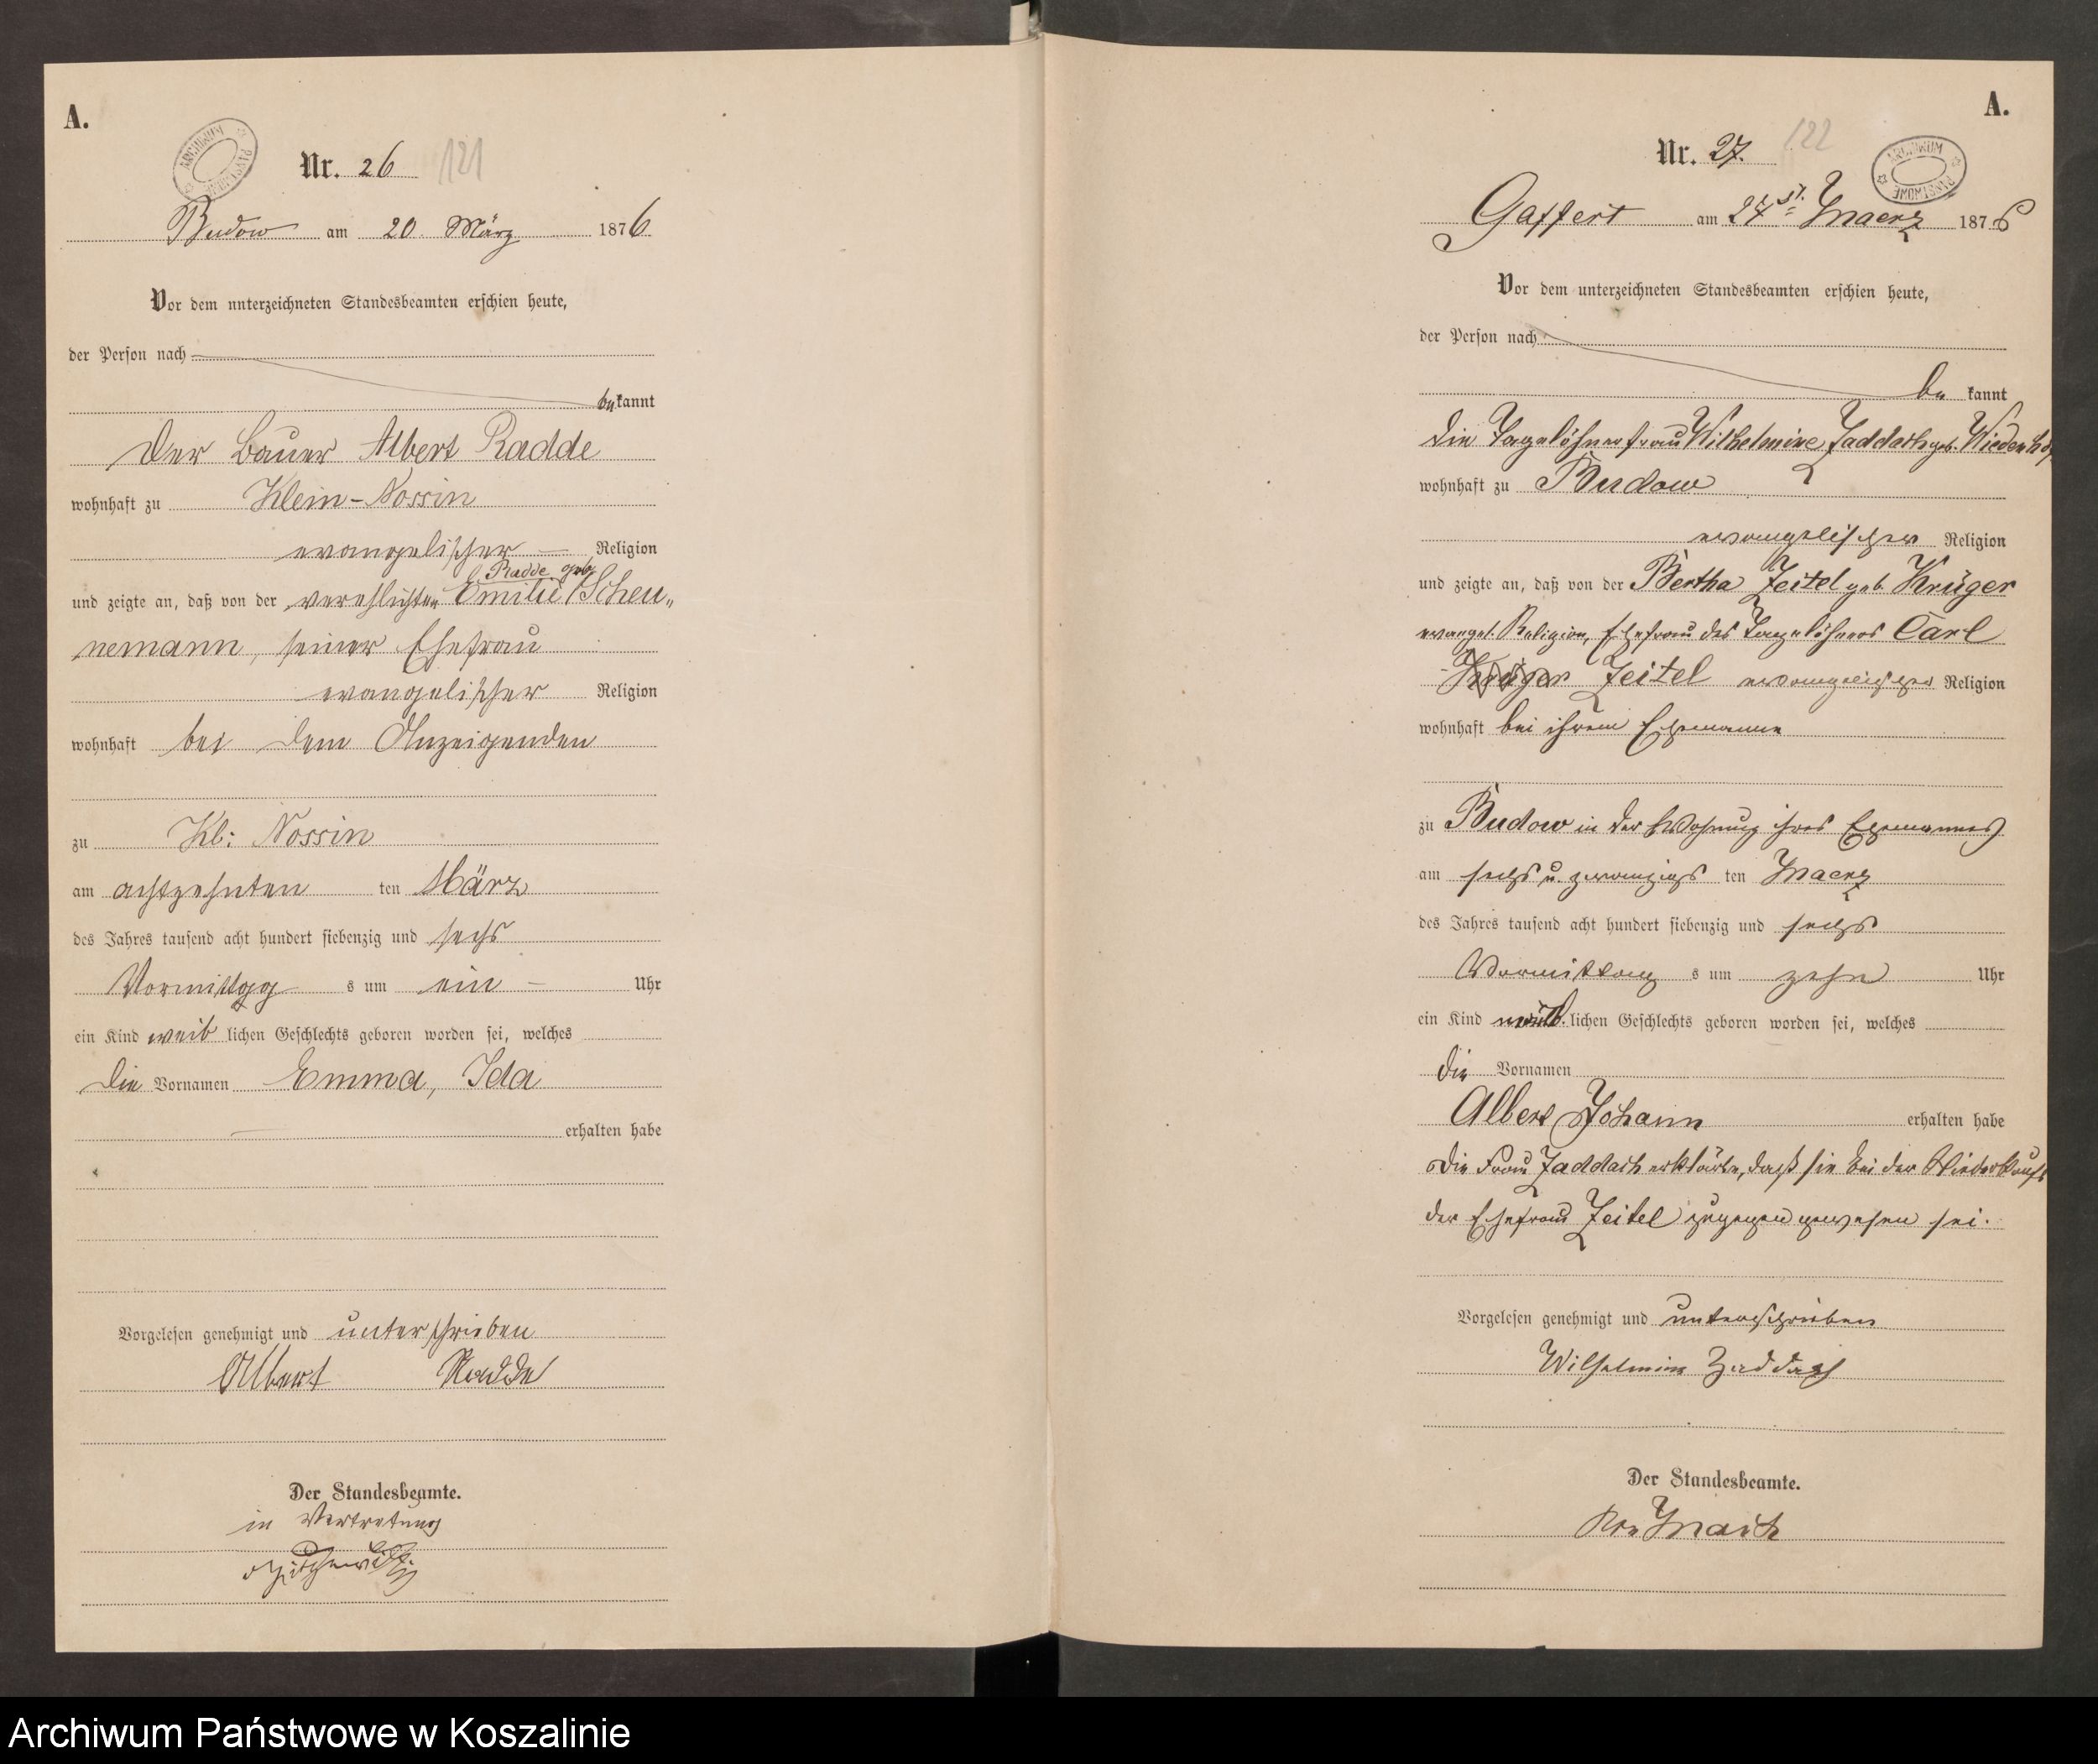 A.
ARCHIWUM PAŃSTWOWE
Nr. 26 121
Budow am 20. März 1876
Vor dem unterzeichneten Standesbeamten erschien heute,
der Person nach
bekannt
der Bauer Albert Radde
wohnhaft zu Klein-Nossin
evangelischer Religion
Radde geb.
und zeigte an, daß von der verehlichten Emilie Scheu„
nemann, seiner Ehefrau
evangelischer Religion
wohnhaft bei dem Anzeigenden
zu Kl: Nossin
am achtzehnten ten März
des Jahres tausend acht hundert siebenzig und sechs
Vormittag s um ein Uhr
ein Kind weib lichen Geschlechts geboren worden sei, welches
die Vornamen Emma, Ida
erhalten habe
Vorgelesen genehmigt und unterschrieben
Albert Radde
Der Standesbeamte.
in Vertretung
A.
ARCHIWUM PAŃSTWOWE
Nr. 27. 122
Gaffert am 27st. Maerz 1876
Vor dem unterzeichneten Standesbeamten erschien heute,
der Person nach
be kannt
die Tagelöhnerfrau Wilhelmine Zaddach geb.
wohnhaft zu Budow
evangelischer Religion
und zeigte an, daß von der Bertha Zeitel geb Krüger
evangel. Religion, Ehefrau des Tagelöhners Carl
Krüger Zeitel evangelischer Religion
wohnhaft bei ihrem Ehemanne
zu Budow in der Wohnung ihres Ehemannes
am sechs u. zwanzigs ten Maerz
des Jahres tausend acht hundert siebenzig und sechs
Vormittag s um zehn Uhr
ein Kind männl. lichen Geschlechts geboren worden sei, welches
die Vornamen
Albert Johann erhalten habe
Die Frau Zaddach erklärte, daß sie bei der Niederkunft
der Ehefrau Zeitel zugegen gewesen sei.
Vorgelesen genehmigt und unterschrieben
Wilhelmine Zaddach
Der Standesbeamte.
Archiwum Państwowe w Koszalinie